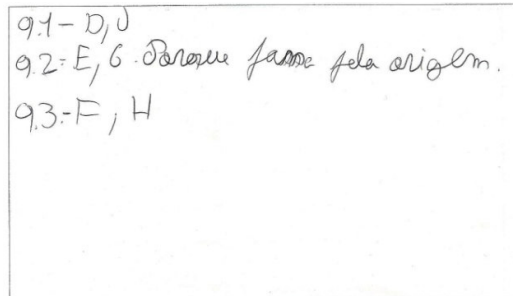 9.1 - D, J
9.2 = E, G. Porque passa pela origem.
9.3 - F, H